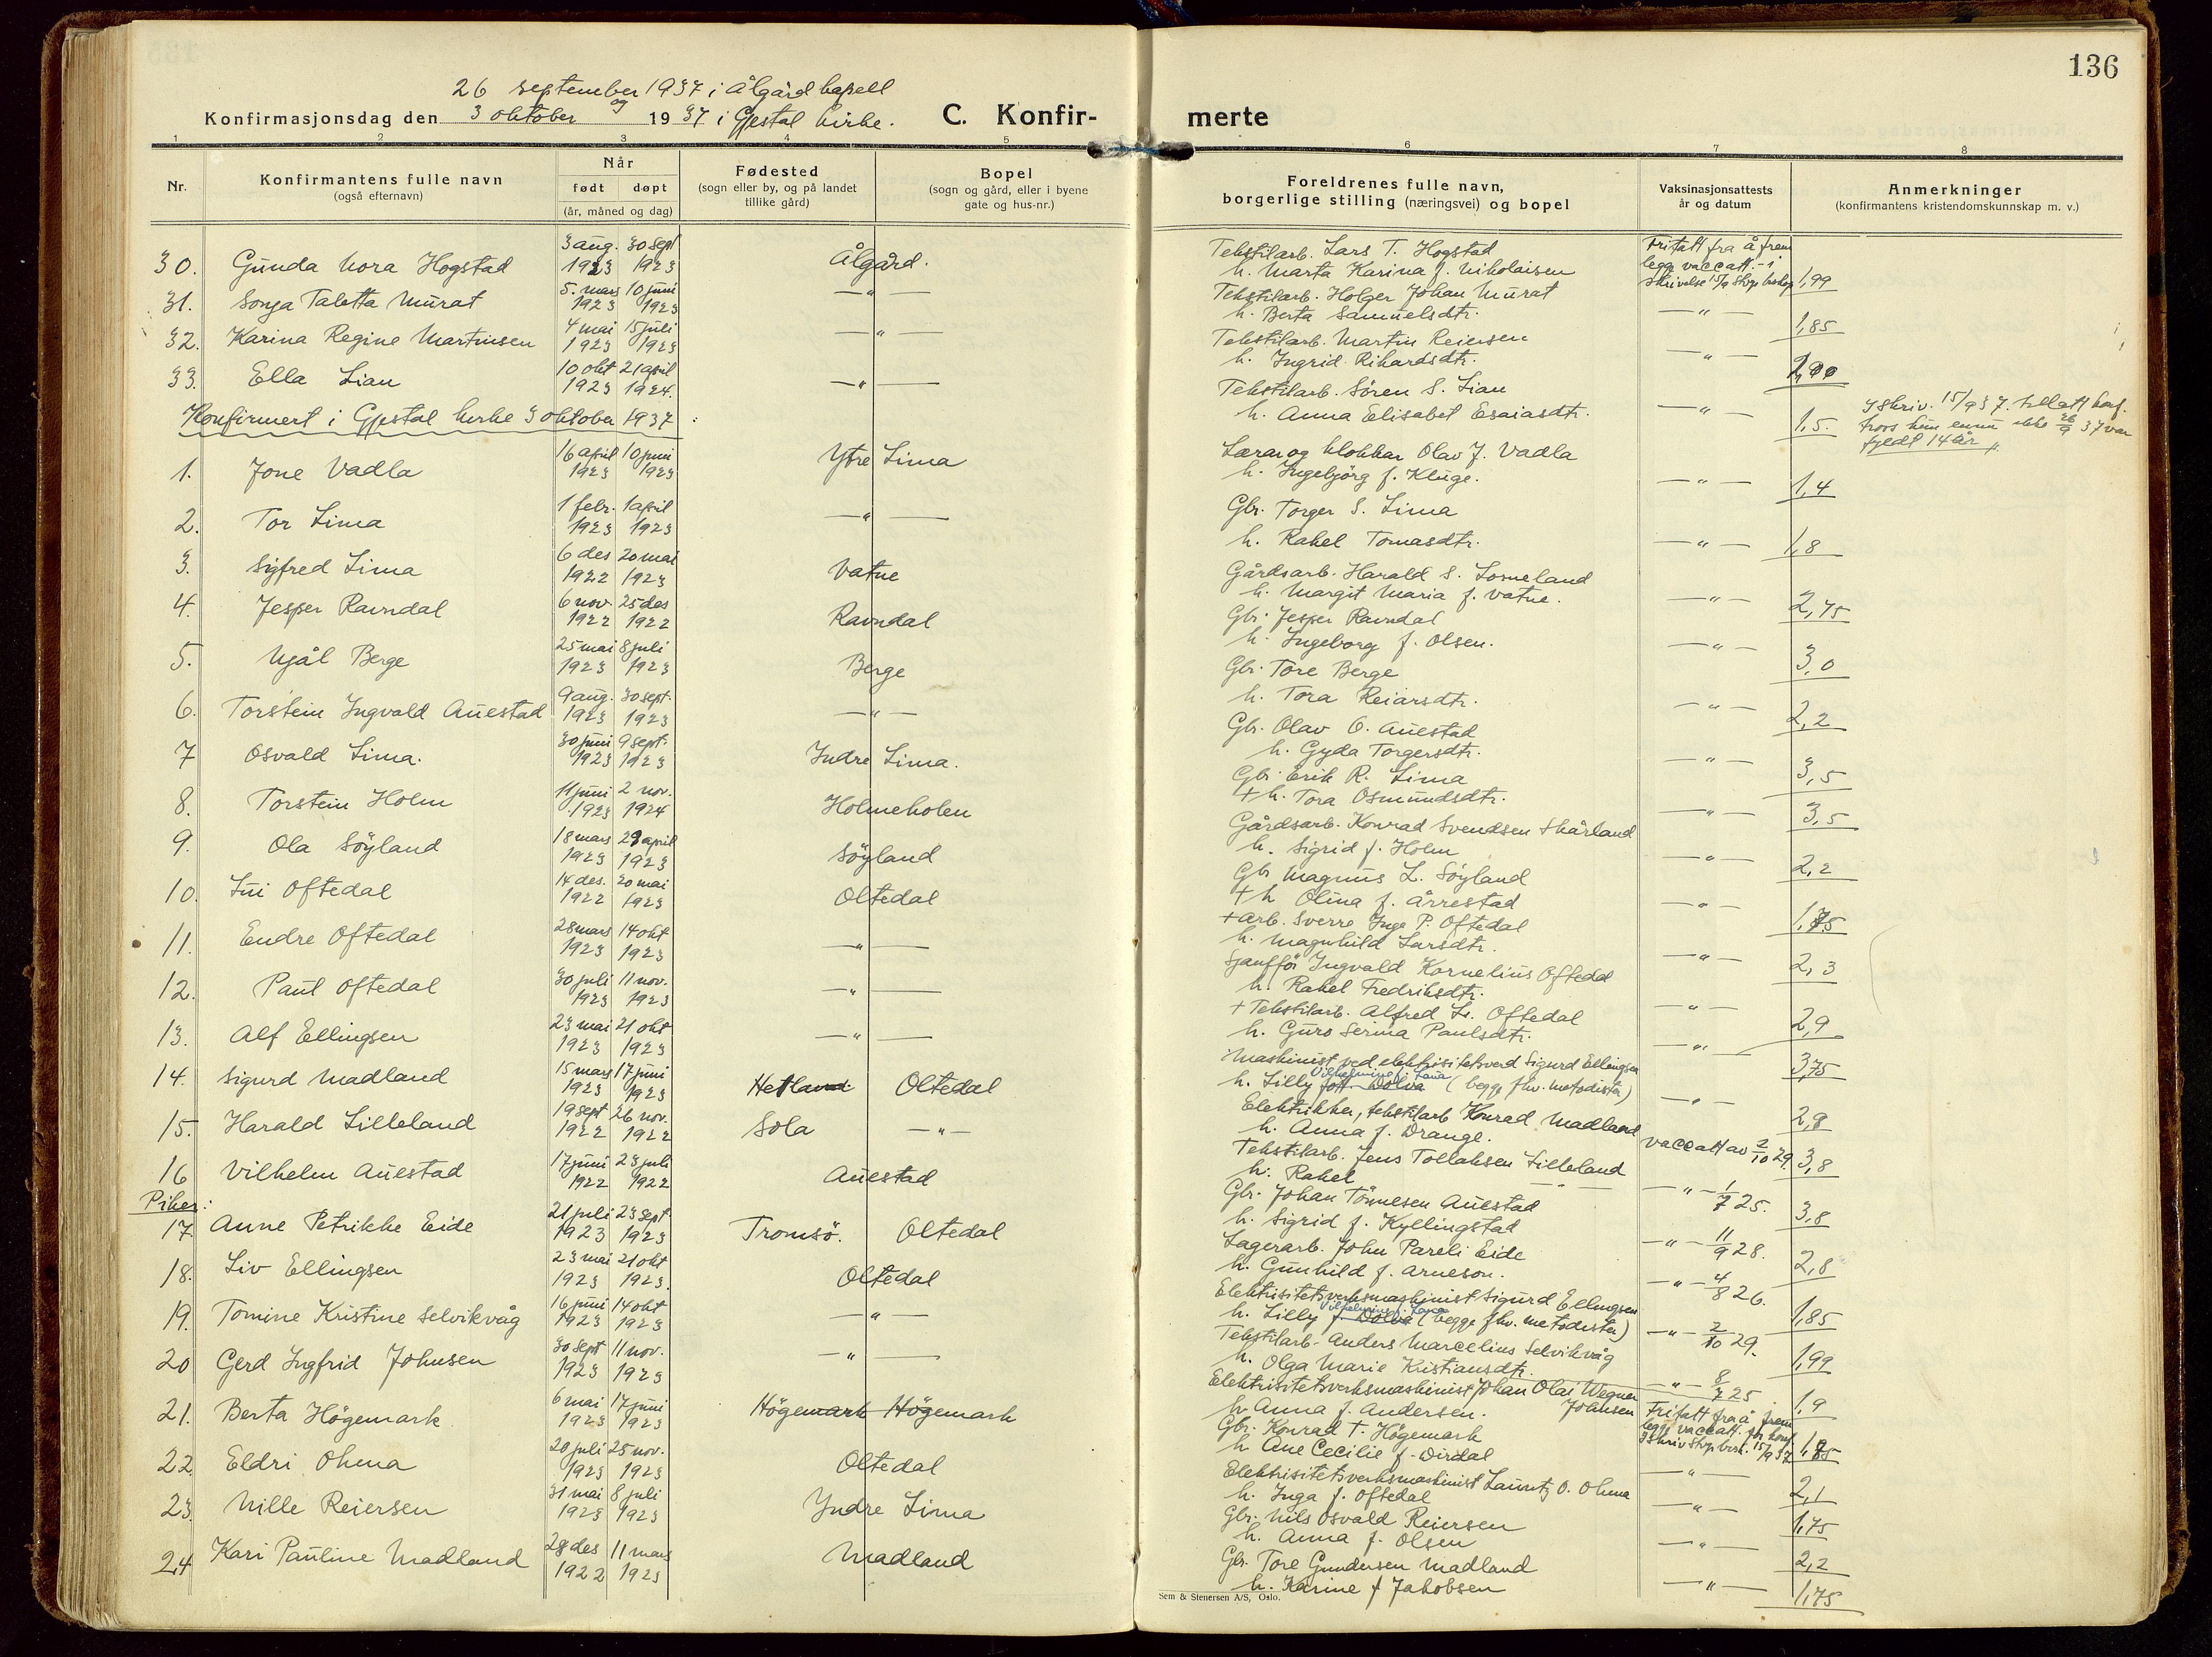 136
26 september 1937 i Ålgård kapell
og
Konfirmasjonsdag den 3 oktober 1937 i Gjestal kirke.
C. Konfir-
merte
1 2 3 4 5 6 7 8
Nr.
Konfirmantens fulle navn
(også efternavn)
Når
født døpt
(år, måned og dag)
Fødested
(sogn eller by, og på landet
tillike gård)
Bopel
(sogn og gård, eller i byene
gate og hus-nr.)
Foreldrenes fulle navn,
borgerlige stilling (næringsvei) og bopel
Vaksinasjonsattests
år og datum
Anmerkninger
(konfirmantens kristendomskunnskap m. v.)
30. Gunda Nora Hogstad 3 aug. 1923 30 sept 1923 Ålgård.
Tekstilarb. Lars T. Hogstad
h. Marta Karina f. Nikolaisen
Fritatt fra å frem
legge vaccatt. - i
skrivelse 15/9 Stvgr. biskop 1,99
31. Sonja Taletta Murat 5. mars 1923 10 juni 1923 — " —
Tekstilarb. Holger Johan Murat
h. Berta Samuelsdtr. — " — 1,85
32. Karina Regine Martinsen 4 mai 1923 15 juli 1923 — " —
Tekstilarb. Martin Reiersen
h. Ingrid Rikardsdtr. — " — 2,00
33. Ella Lian 10 okt 1923 21 april 1924. — " —
Tekstilarb. Sören S. Lian
h. Anna Elisabet Esaiasdtr. — " — 1,5.
I skriv. 15/9 37. tillatt konf.
tross hun ennu ikke 26/9 37 var
fyldt 14 år "
Konfirmert i Gjestal kirke 3 oktober 1937:
1. Jone Vadla 16 april 1923 10 juni 1923 Ytre Lima
Lærer og klokker Olav J. Vadla
h. Ingebjörg f. Kluge. — " — 1,4
2. Tor Lima 1 febr. 1923 1 april 1923 — " —
Gbr. Torger S. Lima
h. Rakel Tomasdtr. — " — 1,8
3. Sigfred Lima 6 des 1922 20 mai 1923 Vatne
Gårdsarb. Harald S. Lomeland
h. Margit Maria f. Vatne. — " — 2,75
4. Jesper Ravndal 6 nov 1922 25 des 1922 Ravndal
Gbr. Jesper Ravndal
h. Ingeborg f. Olsen. — " — 3,0
5. Njål Berge 25 mai 1923 8 juli 1923 Berge
Gbr. Tore Berge
h. Tora Reiarsdtr. — " — 2,2
6. Torstein Ingvald Auestad 9 aug. 1923 30 sept. 1923 — " —
Gbr. Olav O. Auestad
h. Gyda Torgersdtr. — " — 3,5
7 Osvald Lima. 30 juni 1923 9 sept. 1923 Indre Lima.
Gbr. Erik R. Lima
+ h. Tora Osmundsdtr. — " — 3,5
8. Torstein Holm 11 juni 1923 2 nov. 1924 Holmeholen
Gårdsarb. Konrad Svendsen Skårland
h. Sigrid f. Holm — " — 2,2
9. Ola Söyland 18 mars 1923 29 april 1923 Söyland
Gbr Magnus L. Söyland
+ h Olina f. Årrestad — " — 1,75
10. Lui Oftedal 14 des. 1922 20 mai 1923 Oltedal
+ arb. Sverre Inge P. Oftedal
h. Magnhild Larsdtr. — " — 2,3
11. Endre Oftedal 28 mars 1923 14 okt 1923 — " —
Sjauffør Ingvald Kornelius Oftedal
h. Rakel Fredriksdtr. — " — 2,9
12. Paul Oftedal 30 juli 1923 11 nov. 1923 — " —
+ Tekstilarb. Alfred L. Oftedal
h. Guro Serina Paulsdtr. — " — 3,75
13. Alf Ellingsen 23 mai 1923 21 okt 1923 — " —
Maskinist ved elektrisitetsverd Sigurd Ellingsen
Vilhelmine f. Lana
h. Lilly (begge fhv. metodister) — " — 2,8
14. Sigurd Madland 15 mars 1923 17 juni 1923 Hetland Oltedal
Elektriker, tekstilarb Konrad Madland
h. Anna f. Drange. vaccatt av 2/10 29. 3,8
15. Harald Lilleland 19 sept 1922 26 nov. 1922 Sola — " —
Tekstilarb. Jens Tollaksen Lilleland
h. Rakel — " — 1/7 25. 3,8
16 Vilhelm Auestad 17 juni 1922 23 juli 1922 Auestad
Gbr. Johan Tönnesen Auestad
h. Sigrid f. Kyllingstad — " — 11/9 28. 2,8
Piker:
17. Anne Petrikke Eide 21 juli 1923 23 sept. 1923 Tromsö. Oltedal
Lagerarb. John Pareli Eide
h. Gunhild f. Arneson. — " — 4/8 26. 1,85
18. Liv Ellingsen 23 mai 1923 21 okt 1923. Oltedal
Elektrisitetsverksmaskinist Sigurd Ellingsen
Vilhelmine f. Lana
h. Lilly f. Dolva (begge fhv. metodister) — " — 2/10 29. 1,99
19. Tomine Kristine Selvikvåg 16 juni 1923 14 okt 1923 — " —
Tekstilarb. Anders Marcelius Selvikvåg
h. Olga Marie Kristiansdtr. — " — 8/7 25 1,9
20 Gerd Ingfrid Johnsen 30 sept 1923 11 nov. 1923 — " —
Elektrisitetsverksmaskinist Johan Olai Wegner Johnsen
h. Anna f. Andersen.
Fritatt fra å frem
legge vaccatt. for konf.
I skriv Stvgr. bisk. 15/9 37
21. Berta Högemark 6 mai 1923 17 juni 1923 Högemark Högemark
Gbr. Konrad T. Högemark
h Ane Cecilie f. Dirdal — " — 2,1
22 Eldri Ohma 20 juli 1923 25 nov. 1923 Oltedal
Elektrisitetsverksmaskinist Lauritz O. Ohma
h. Inga f. Oftedal — " — 1,75
23. Nille Reiersen 31 mai 1923 8 juli 1923 Indre Lima
Gbr. Nils Osvald Reiersen
h. Anna f. Olsen — " — 2,2
24 Kari Pauline Madland 28 des 1922 11 mars 1923 Madland
Gbr. Tore Gundersen Madland
h. Karine f Jakobsen — " — 1,75
Sem & Stenersen A/S, Oslo.